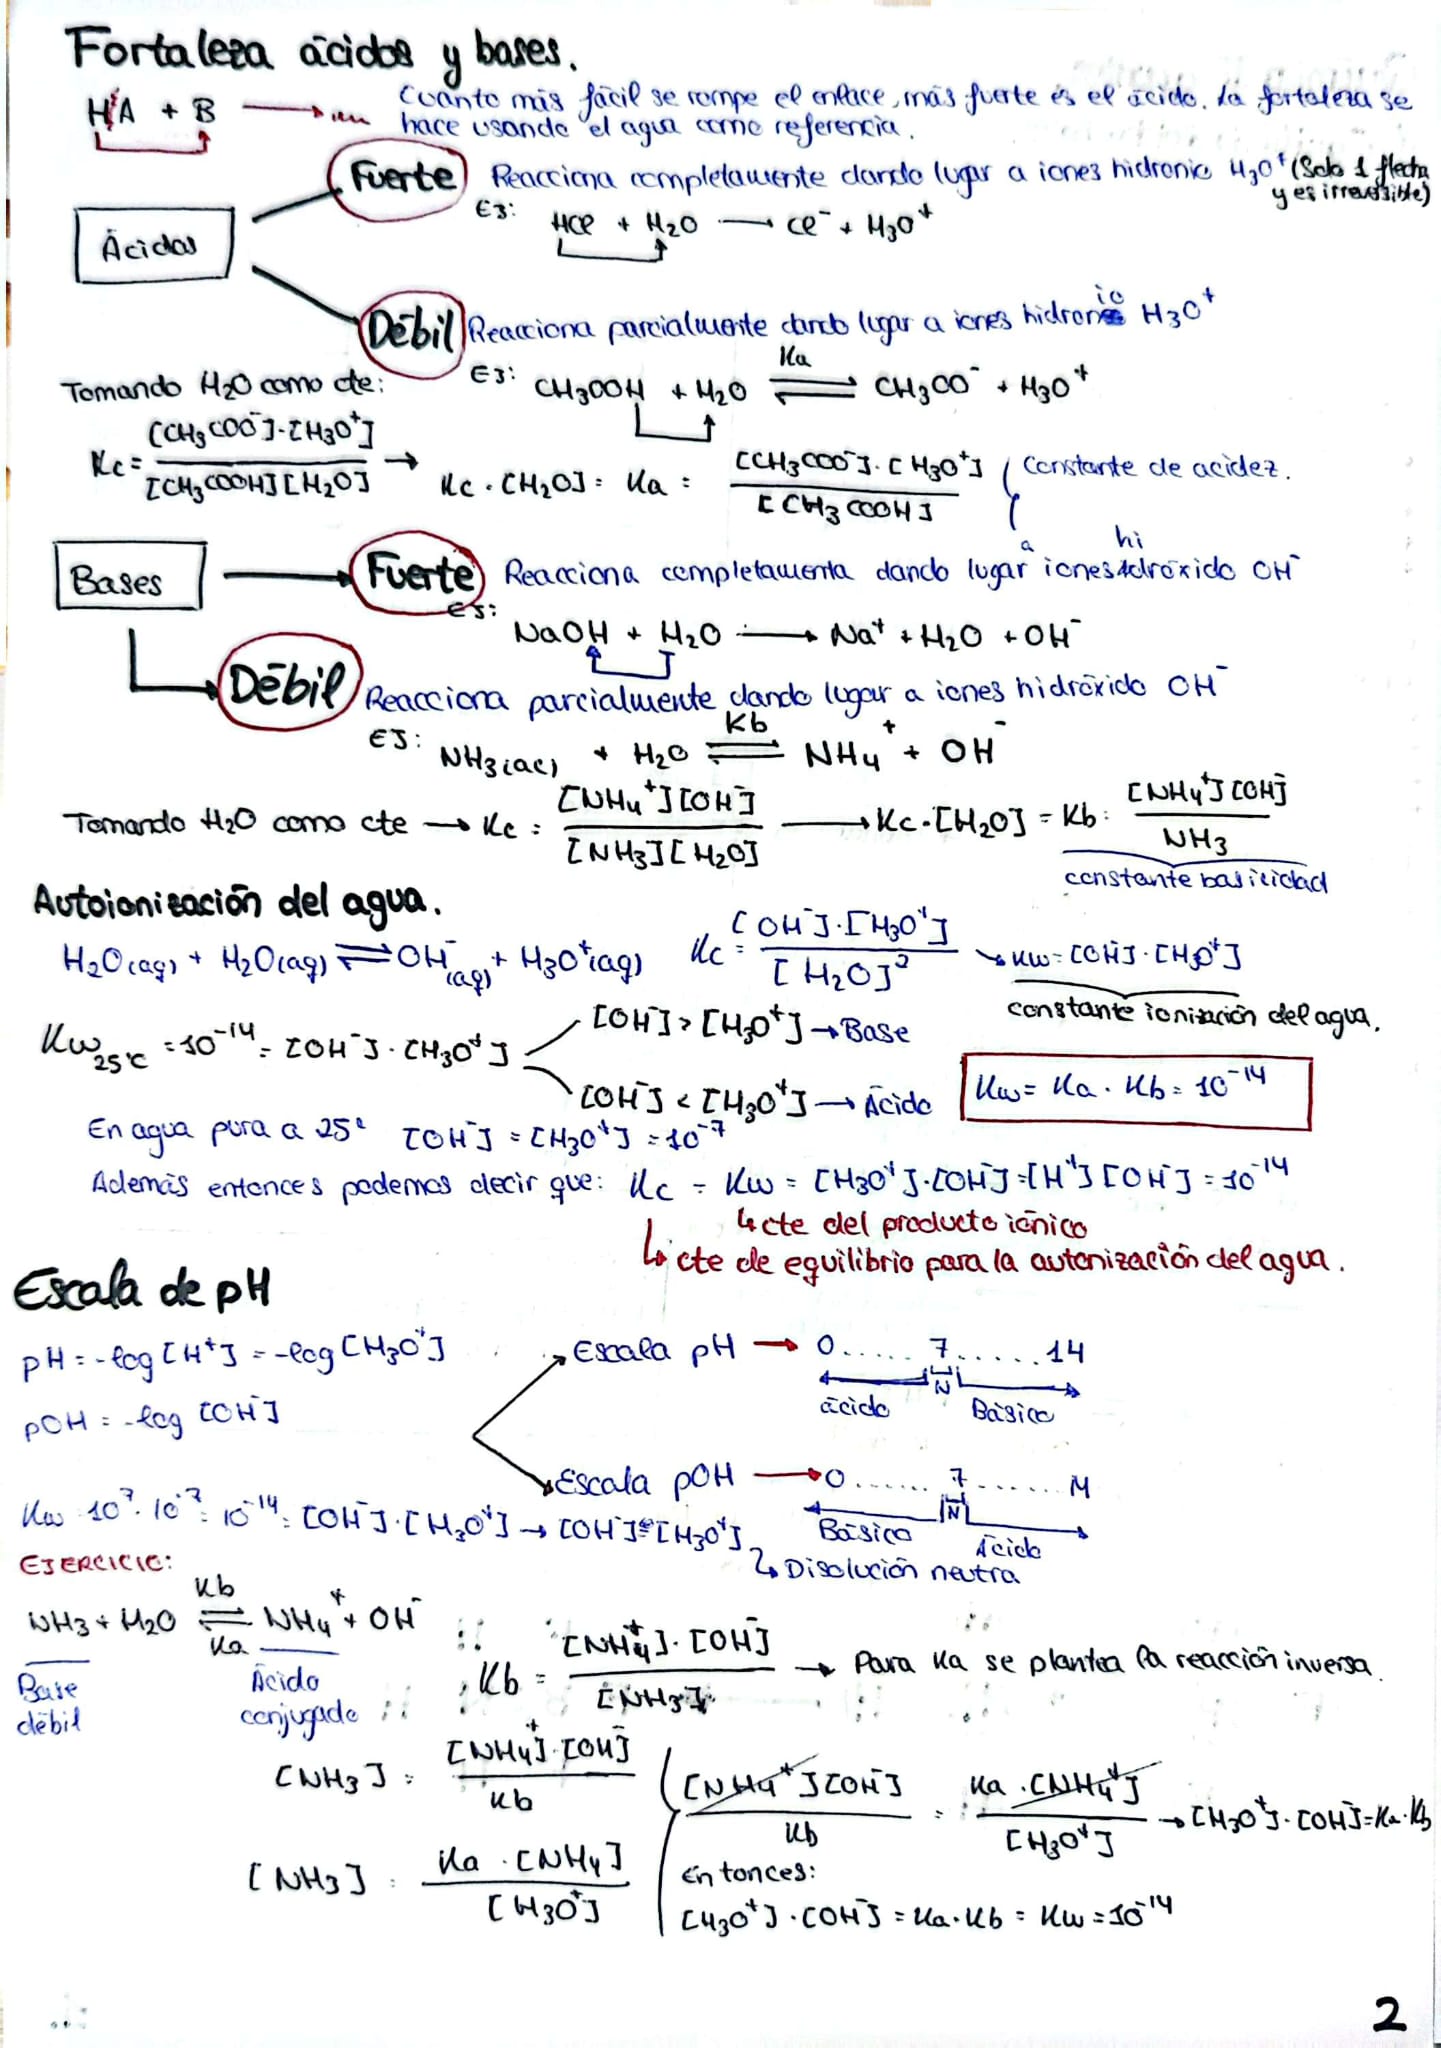 Fortaleza ácidos y bases.
HA + B → Cuanto más fácil se rompe el enlace, más fuerte es el ácido. La fortaleza se
hace usando el agua como referencia.
Fuerte Reacciona completamente dando lugar a iones hidronio H3O+ (Solo 1 flecha
y es irreversible)
Ej: HCl + H2O → Cl- + H3O+
Ácidos
Débil Reacciona parcialmente dando lugar a iones hidronio H3O+
Ka
Ej: CH3OOH + H2O ⇌ CH3CO- + H3O+
Tomando H2O como cte:
Kc = [CH3COO-]·[H3O+] / [CH3COOH][H2O] → Kc · [H2O] = Ka = [CH3COO-]·[H3O+] / [CH3COOH] Constante de acidez.
Bases → Fuerte Reacciona completamenta dando lugar a iones hidróxido OH-
Ej: NaOH + H2O → Na+ + H2O + OH-
Débil Reacciona parcialmente dando lugar a iones hidróxido OH-
Kb
EJ: NH3(ac) + H2O ⇌ NH4+ + OH-
Tomando H2O como cte → Kc = [NH4+][OH-] / [NH3][H2O] → Kc·[H2O] = Kb: [NH4+][OH-] / NH3
constante basicidad
Autoionización del agua.
H2O(aq) + H2O(aq) ⇌ OH-(aq) + H3O+(aq) Kc = [OH-]·[H3O+] / [H2O]2 → Kw = [OH-]·[H3O+]
constante ionización del agua.
Kw 25ºC = 10-14 = [OH-]·[H3O+]
[OH-] > [H3O+] → Base
[OH-] < [H3O+] → Ácido
Kw = Ka · Kb = 10-14
En agua pura a 25º [OH-] = [H3O+] = 10-7
Además entonces podemos decir que: Kc = Kw = [H3O+]·[OH-] = [H+][OH-] = 10-14
↳ cte del producto iónico
↳ cte de equilibrio para la autonización del agua.
Escala de pH
pH = -log [H+] = -log [H3O+]
Escala pH → 0...... 7......14
N
ácido Básico
pOH = -log [OH-]
Escala pOH → 0....... 7...... 14
N
Básico Ácido
Kw 10-7 · 10-7 = 10-14 = [OH-]·[H3O+] → [OH-] = [H3O+]
↳ Disolución neutra
EJERCICIO:
Kb
NH3 + H2O ⇌ NH4+ + OH-
Ka
Base débil
Ácido conjugado
Kb = [NH4+]·[OH-] / [NH3] → Para Ka se plantea la reacción inversa.
[NH3] = [NH4+]·[OH-] / Kb
[NH4+][OH-] / Kb = Ka · [NH4+] / [H3O+] → [H3O+]·[OH-] = Ka·Kb
[NH3] = Ka · [NH4] / [H3O+]
Entonces:
[H3O+]·[OH-] = Ka·Kb = Kw = 10-14
2